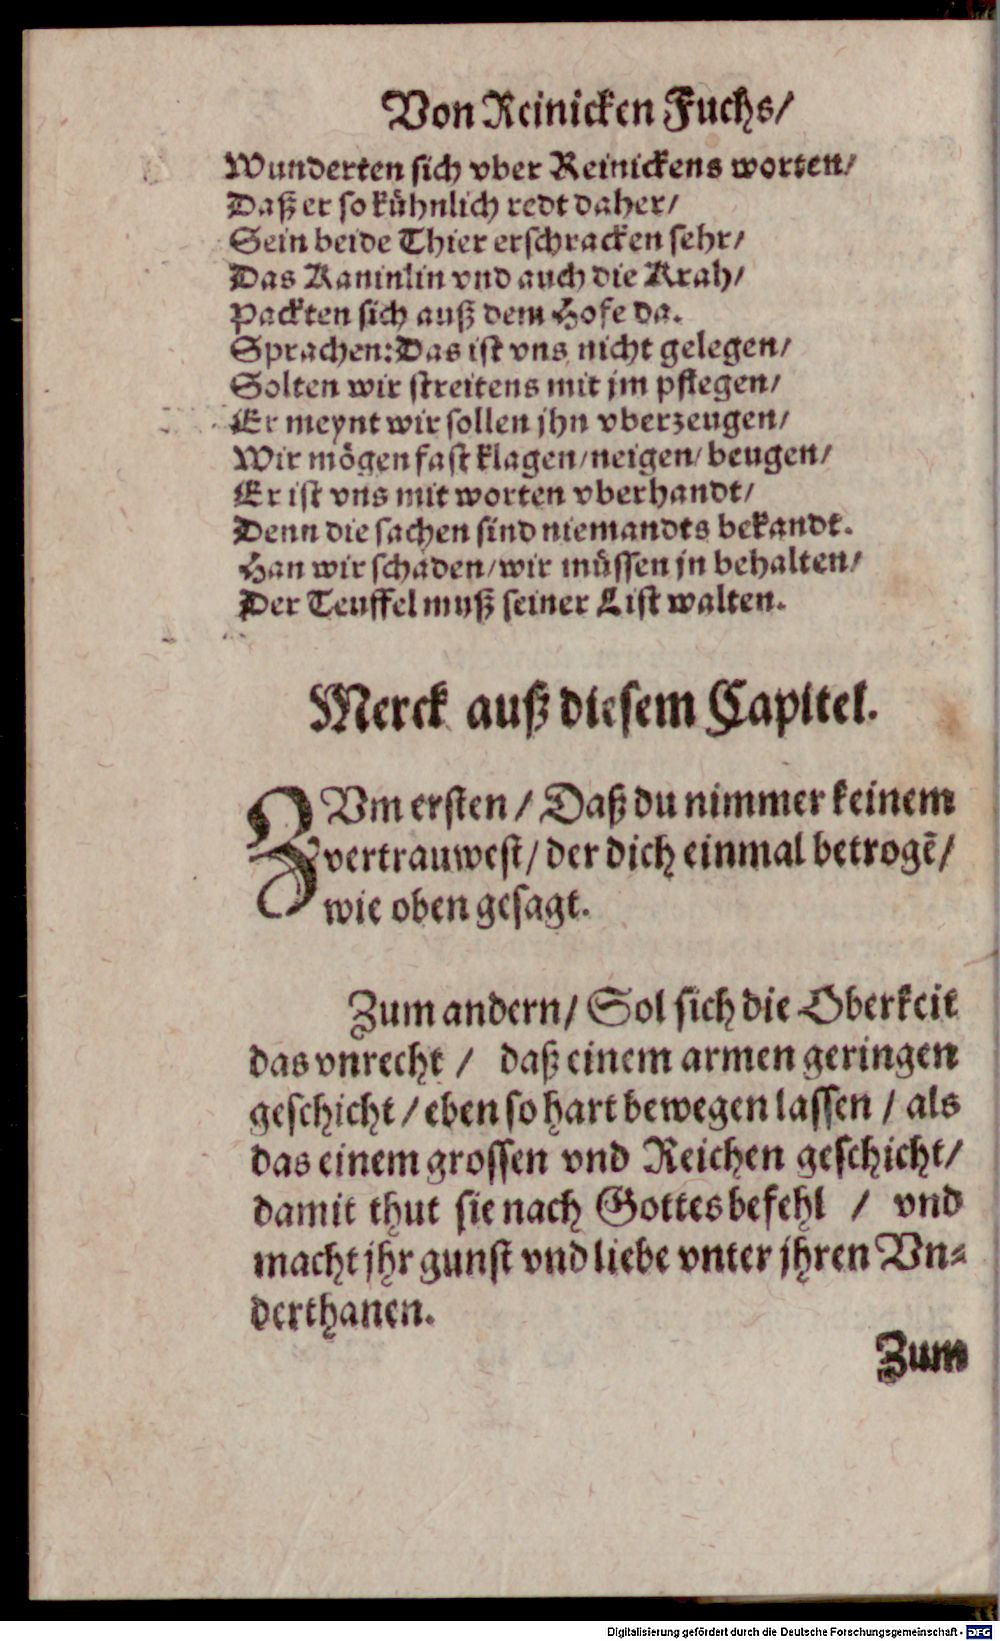 Von Reinicken Fuchs/
Wunderten sich vber Reinickens worten/
Daß er so kühnlich redt daher/
Sein beide Thier erschracken sehr/
Das Kaninlin vnd auch die Krah/
Packten sich auß dem Hofe da.
Sprachen: Das ist vns nicht gelegen/
Solten wir streitens mit jm pflegen/
Er meynt wir sollen jhn vberzeugen/
Wir mögen fast klagen/neigen/beugen/
Er ist vns mit worten vberhandt/
Denn die sachen sind niemandts bekandt.
Han wir schaden/wir müssen jn behalten/
Der Teuffel muß seiner List walten.
Merck auß diesem Capitel.
ZVm ersten / Daß du nimmer keinem
vertrauwest/ der dich einmal betrogē/
wie oben gesagt.
Zum andern/ Sol sich die Oberkeit
das vnrecht / daß einem armen geringen
geschicht / eben so hart bewegen lassen / als
das einem grossen vnd Reichen geschicht/
damit thut sie nach Gottes befehl / vnd
macht jhr gunst vnd liebe vnter jhren Vn⸗
derthanen.
Zum
Digitalisierung gefördert durch die Deutsche Forschungsgemeinschaft - DFG